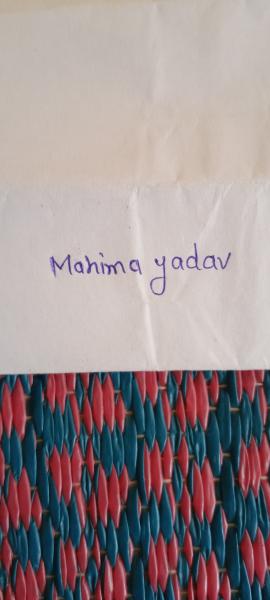 Mahima yadav